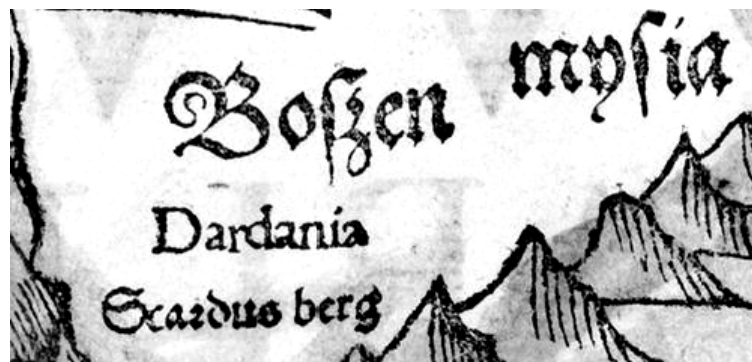 Boſzen
myſia
Dardania
Scardus berg